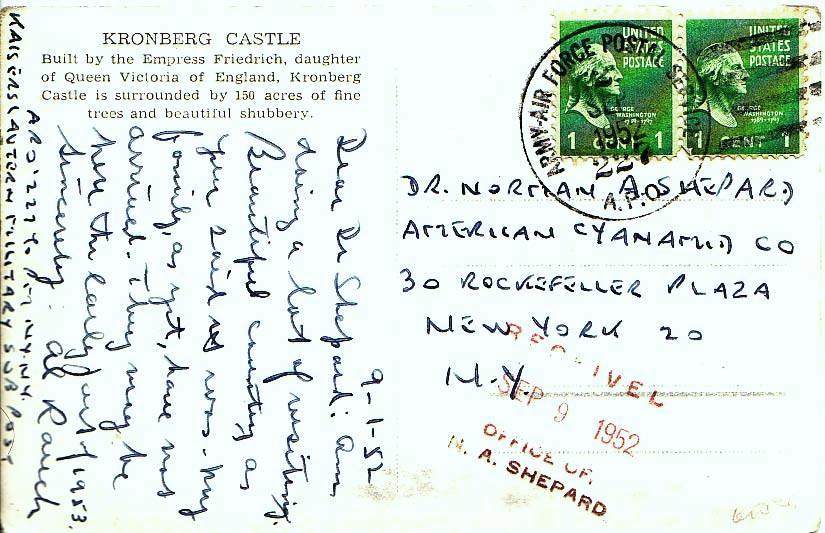 KRONBERG CASTLE
Built by the Empress Friedrich, daughter
of Queen Victoria of England, Kronberg
Castle is surrounded by 150 acres of fine
trees and beautiful shubbery.
9-1-52
Dear Dr Shepard: Am
doing a lot of visiting.
Beautiful country as
you said it was. My
family, as yet, have not
arrived. They may be
here the early part of 1953.
Sincerely. Al Rauch
APO 227 % PM NY. NY.
KAISERSLAUTERN MILITARY SUB POST
UNITED
STATES
POSTAGE
GEORGE
WASHINGTON
1789-1797
1 CENT 1
UNITED
STATES
POSTAGE
GEORGE
WASHINGTON
1789-1797
1 CENT 1
ARMY-AIR FORCE POSTAL SERVICE
1952
227
A.P.O.
DR. NORMAN A SHEPARD
AMERICAN CYANAMID CO
30 ROCKEFELLER PLAZA
NEW YORK 20
N.Y.
RECEIVED
SEP 9 1952
OFFICE OF
N. A. SHEPARD